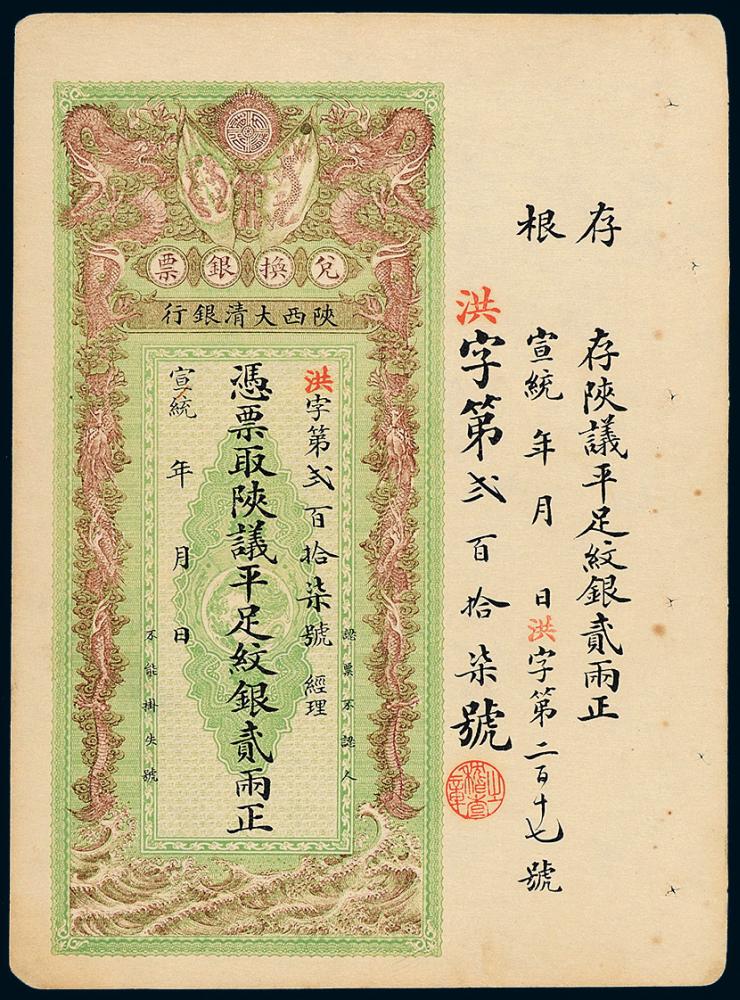 存根
存陝議平足紋銀貳兩正
宣統 年 月 日洪字第二百十七號
洪字第弍百拾柒號
兌換銀票
陝西大清銀行
洪字第弍百拾柒號 經理
憑票取陝議平足紋銀貳兩正
宣統 年 月 日
認票不認人
不能掛失號